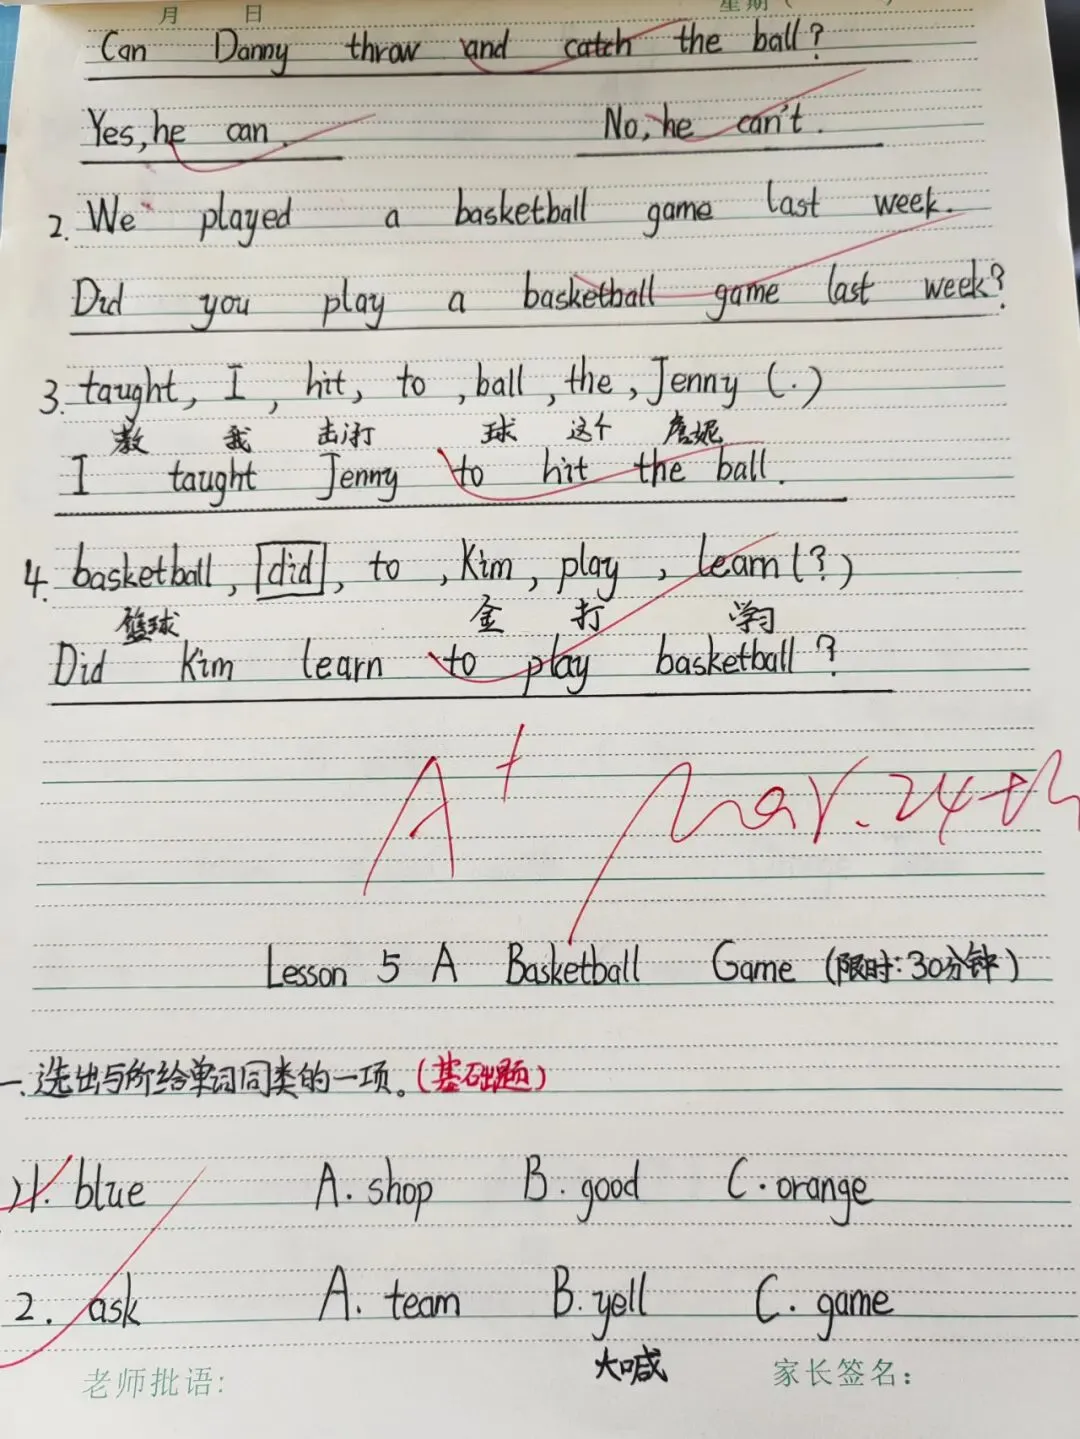 月 日 星期(
Can Danny throw and catch the ball?
Yes, he can. No, he can't.
2. We played a basketball game last week.
Did you play a basketball game last week?
3. taught, I, hit, to, ball, the, Jenny (.)
教 我 击打 球 这个 詹妮
I taught Jenny to hit the ball.
4. basketball, did, to, Kim, play, learn (?)
篮球 金 打 学习
Did Kim learn to play basketball?
A+ Mar. 24th
Lesson 5 A Basketball Game (限时: 30分钟)
一、选出与所给单词同类的一项。(基础题)
)1. blue A. shop B. good C. orange
2. ask A. team B. yell C. game
大喊
老师批语: 家长签名: